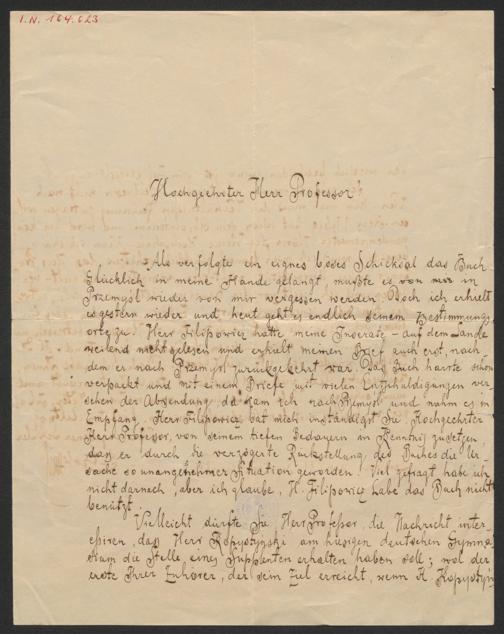 I.N. 164.623
Hochgeehrter Herr Professor!
Als verfolgte ein eignes böses Schicksal das Buch.
Glücklich in meine Hände gelangt, mußte es von mir in
Przemyśl wieder von mir vergessen werden. Doch ich erhielt
es gestern wieder und heut geht es endlich seinem Bestimmungs
orte zu. Herr Filipowicz hatte meine Inserate – auf dem Lande
weilend nicht gelesen und erhielt meinen Brief auch erst, nach
dem er nach Przemyśl zurückgekehrt war. Das Buch harrte schön
verpackt und mit einem Briefe mit vielen Entschuldigungen ver
sehen der Absendung, da kam ich nach Przemyśl und nahm es in
Empfang. Herr Filipowicz bat mich inständigst Sie, Hochgeehrter
Herr Professor, von seinem tiefen Bedauern in Kenntniß zu setzen,
daß er durch die verzögerte Rückstellung des Buches die Ur
sache so unangenehmer Situation geworden. Viel gefragt habe ich
nicht darnach, aber ich glaube, H. Filipowicz habe das Buch nicht
benützt.
Vielleicht dürfte Sie, Herr Professor, die Nachricht inter
essiren, daß Herr Kopystyński am hiesigen deutschen Gymna
sium die Stelle eines Supplenten erhalten haben soll; wol der
erste Ihrer Zuhörer, der sein Ziel erreicht, wenn H. Kopystyń